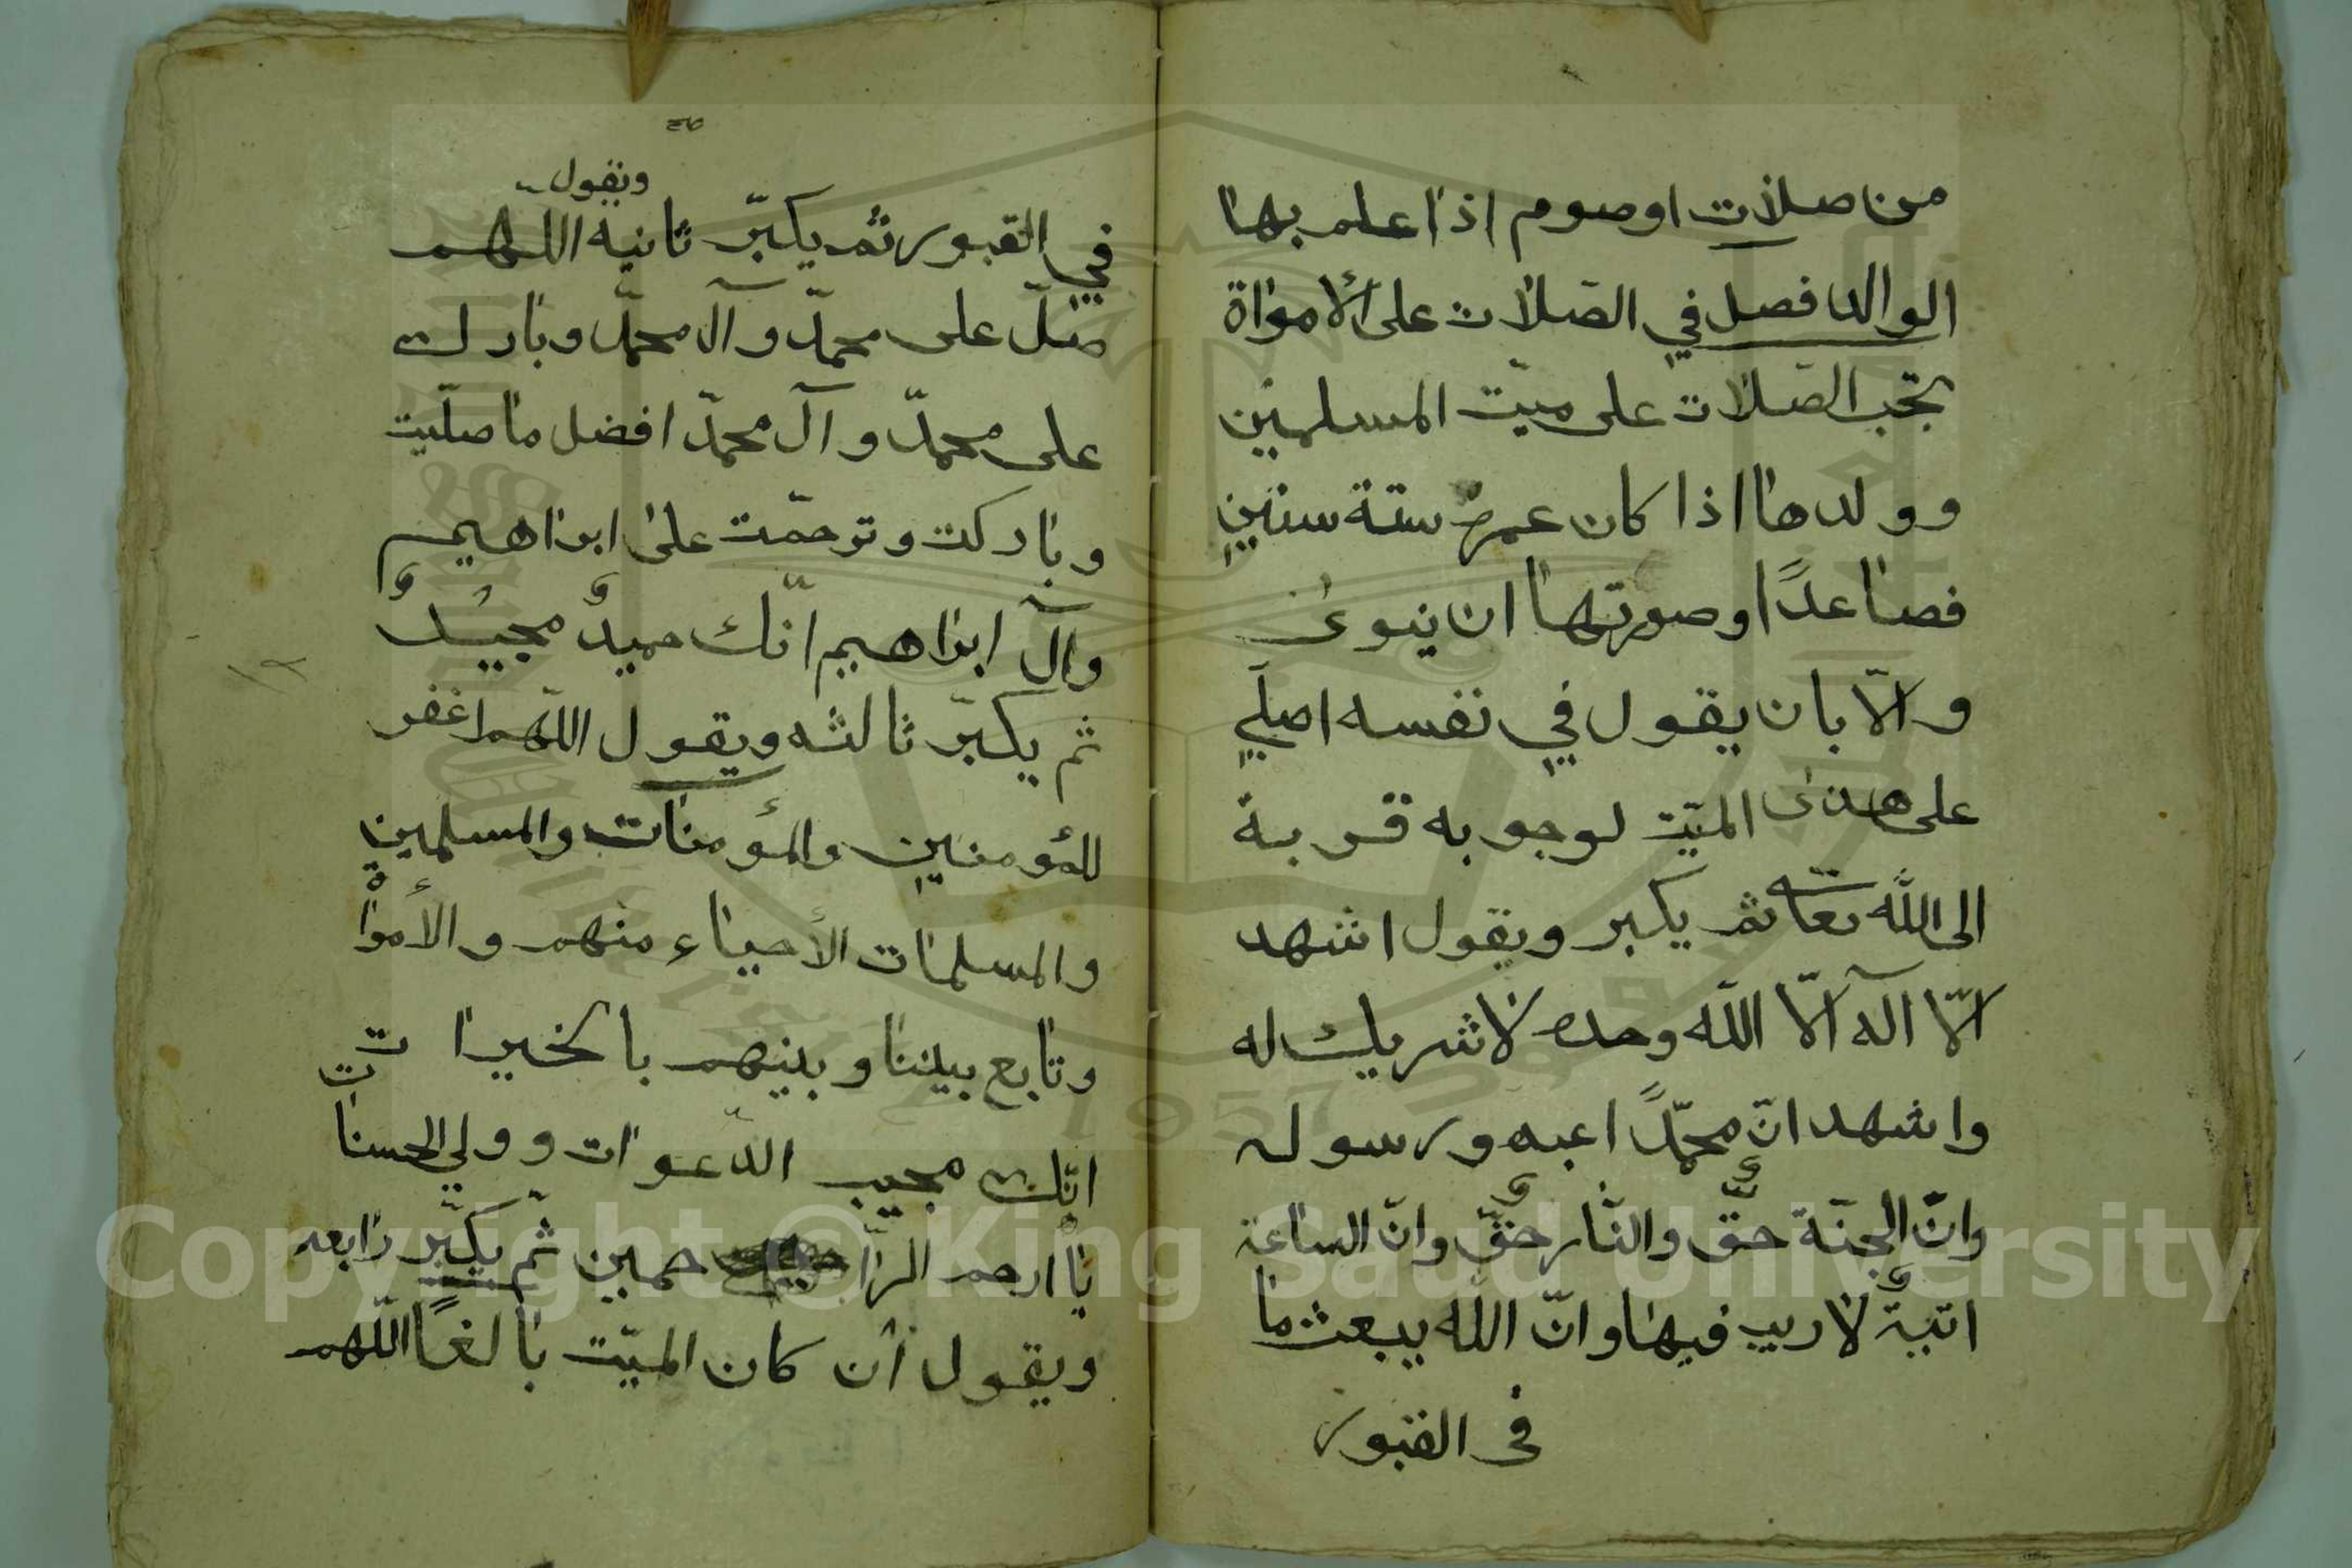 من صلات او صوم اذا علم بها
الوالد فصل في الصّلات على الأمواة
تجب الصّلات على ميّت المسلمين
وولدها اذا كان عمره ستة سنين
فصاعدًا وصورتها ان ينوى
والّا بان يقول في نفسه اصلّي
على هذى الميّت لوجوبه قربة
الى الله تعا ثم يكبر ويقول اشهد
الّا آله الّا الله وحده لا شريك له
واشهد انّ محمّدًا عبده ورسوله
وانّ الجنّة حقٌّ والنّار حقٌّ وانّ الساعة
اتيةٌ لا ريب فيها وانّ الله يبعث ما
فى القبور
ويقول
في القبور ثم يكبّر ثانية اللهم
صلّ على محمّد وآل محمّد وبارك
على محمدّ وآل محمدّ افضل ما صلّيت
وباركت وترحمّت على ابراهيم
وآل ابراهيم انّك حميدٌ مجيدٌ
ثم يكبّر ثالثه ويقول اللّهم اغفر
للمؤمنين والمؤمنات والمسلمين
والمسلمات الأحياء منهم والأمواة
وتابع بيننا وبينهم بالخيرات
انّك مجيب الدّعوات وولي الحسنات
يا ارحم الرّاحمين ثمّ يكبّر رابعه
ويقول أن كان الميّت بالغًا اللّهم
١٢
Copyright © King Saud University
1957